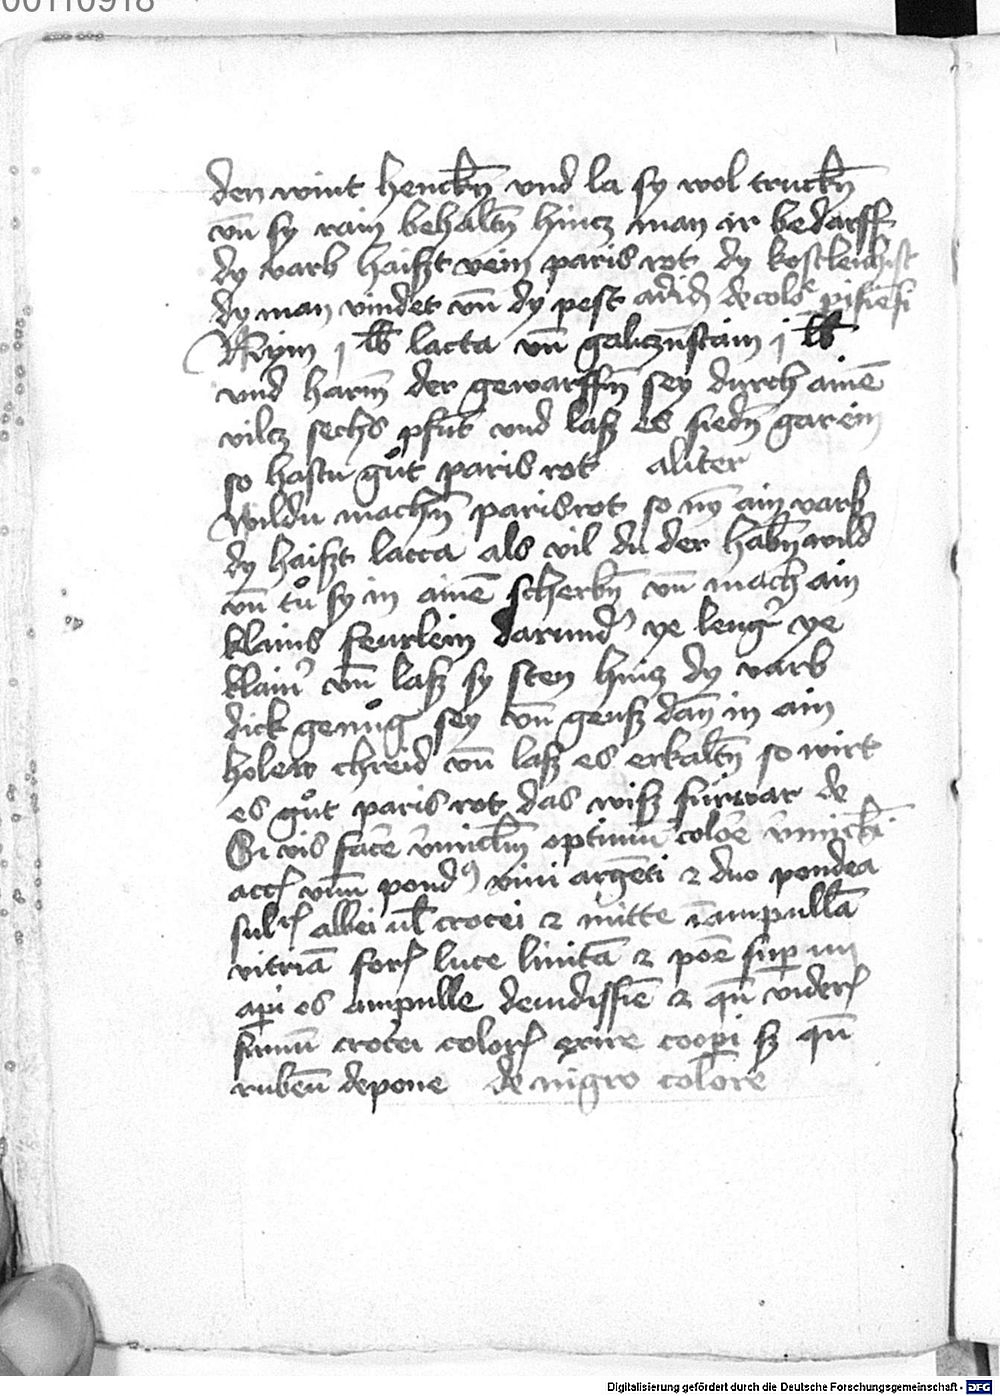 00110918
den wint henckn̄ vnd la sy wol truckn̄
vn̄ sy rain behaltn̄ hincz man ir bedarff
dy varb haiszt vein paris rot dy kostleichist
dy man vindet vn̄ dy pest de colore pisiesi
Nym j lb lacta vn̄ galiczn̄stain j lb
vnd harm̄ der gewarffn̄ sey durch ainē
vilcz sechs pfūt vnd lasz es siedn̄ gar ein
so hastu gůt paris rot aliter
Wildu machn̄ parisrot so nȳ ain varb
dy haiszt lacca als vil du der habn̄ wild
vn̄ tů sy in ainē scherbn̄ vn̄ mach ain
klains feurlein darund' ye leng' ye
klain' vn̄ lasz sy sten hincz dy varb
dick genůg sey vn̄ geusz dan̄ in ain
holew chreid vn̄ lasz es erkaltn̄ so wirt
es gůt paris rot das wisz furwar de
Si vis face v̄miclm̄ optimū coloē v̄micki
acc vnū pond9 vini argēti ⁊ duo pondea
sulr albei ul crocei ⁊ mitte ī ampullā
vitriā for luce linitā ⁊ poē sup un
api os ampulle deindissiē ⁊ qn̄ vider
fumū crocei color exire coopi sz qn̄
rubeū depone de nigro colore
Digitalisierung gefördert durch die Deutsche Forschungsgemeinschaft - DFG